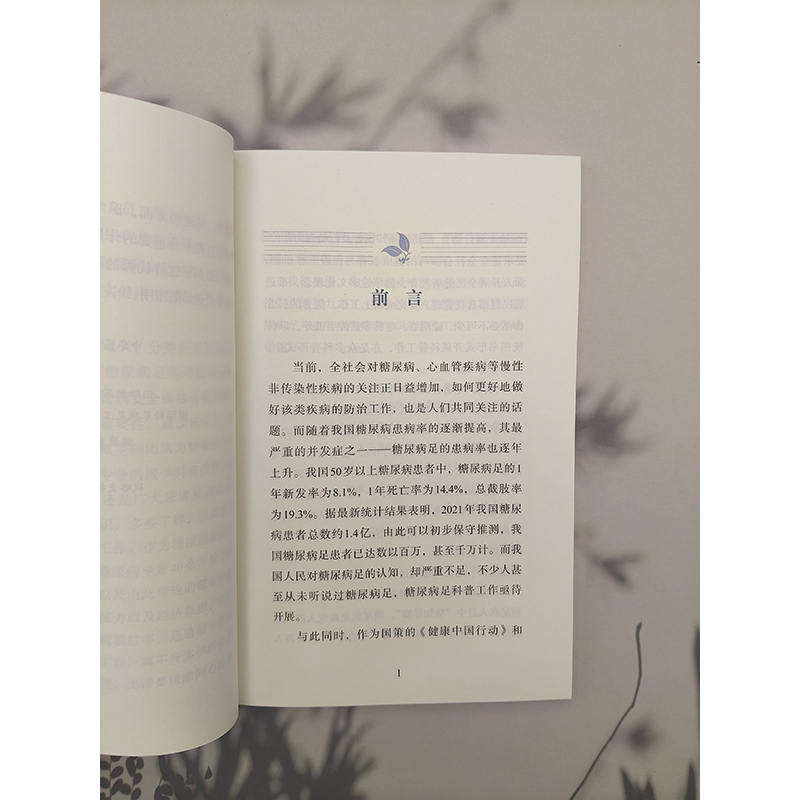 前 言
当前，全社会对糖尿病、心血管疾病等慢性
非传染性疾病的关注正日益增加，如何更好地做
好该类疾病的防治工作，也是人们共同关注的话
题。而随着我国糖尿病患病率的逐渐提高，其最
严重的并发症之一——糖尿病足的患病率也逐年
上升。我国50岁以上糖尿病患者中，糖尿病足的1
年新发率为8.1%，1年死亡率为14.4%，总截肢率
为19.3%。据最新统计结果表明，2021年我国糖尿
病患者总数约1.4亿，由此可以初步保守推测，我
国糖尿病足患者已达数以百万，甚至千万计。而我
国人民对糖尿病足的认知，却严重不足，不少人甚
至从未听说过糖尿病足，糖尿病足科普工作亟待
开展。
与此同时，作为国策的《健康中国行动》和
1